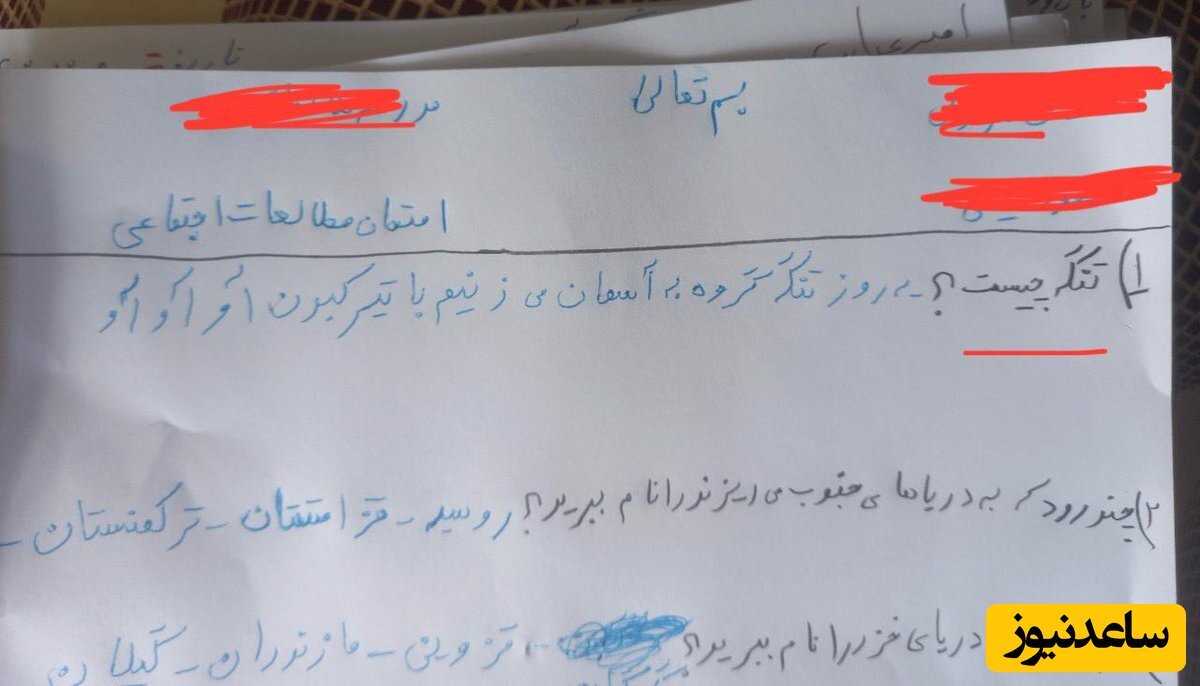 بسم تعالی
امتحان مطالعات اجتماعی
۱) تنگه چیست؟ - یه روز تنگه گروه به آسمان می زنیم با تیر کبون اؤ اؤ اؤ
۲) چند رود که به دریاها ی جنوب می ریزند را نام ببرید؟ روسیه - قزاقستان - ترکمنستان -
دریای خزر را نام ببرید؟ قزوین - مازندران - گیلان
ساعدنیوز